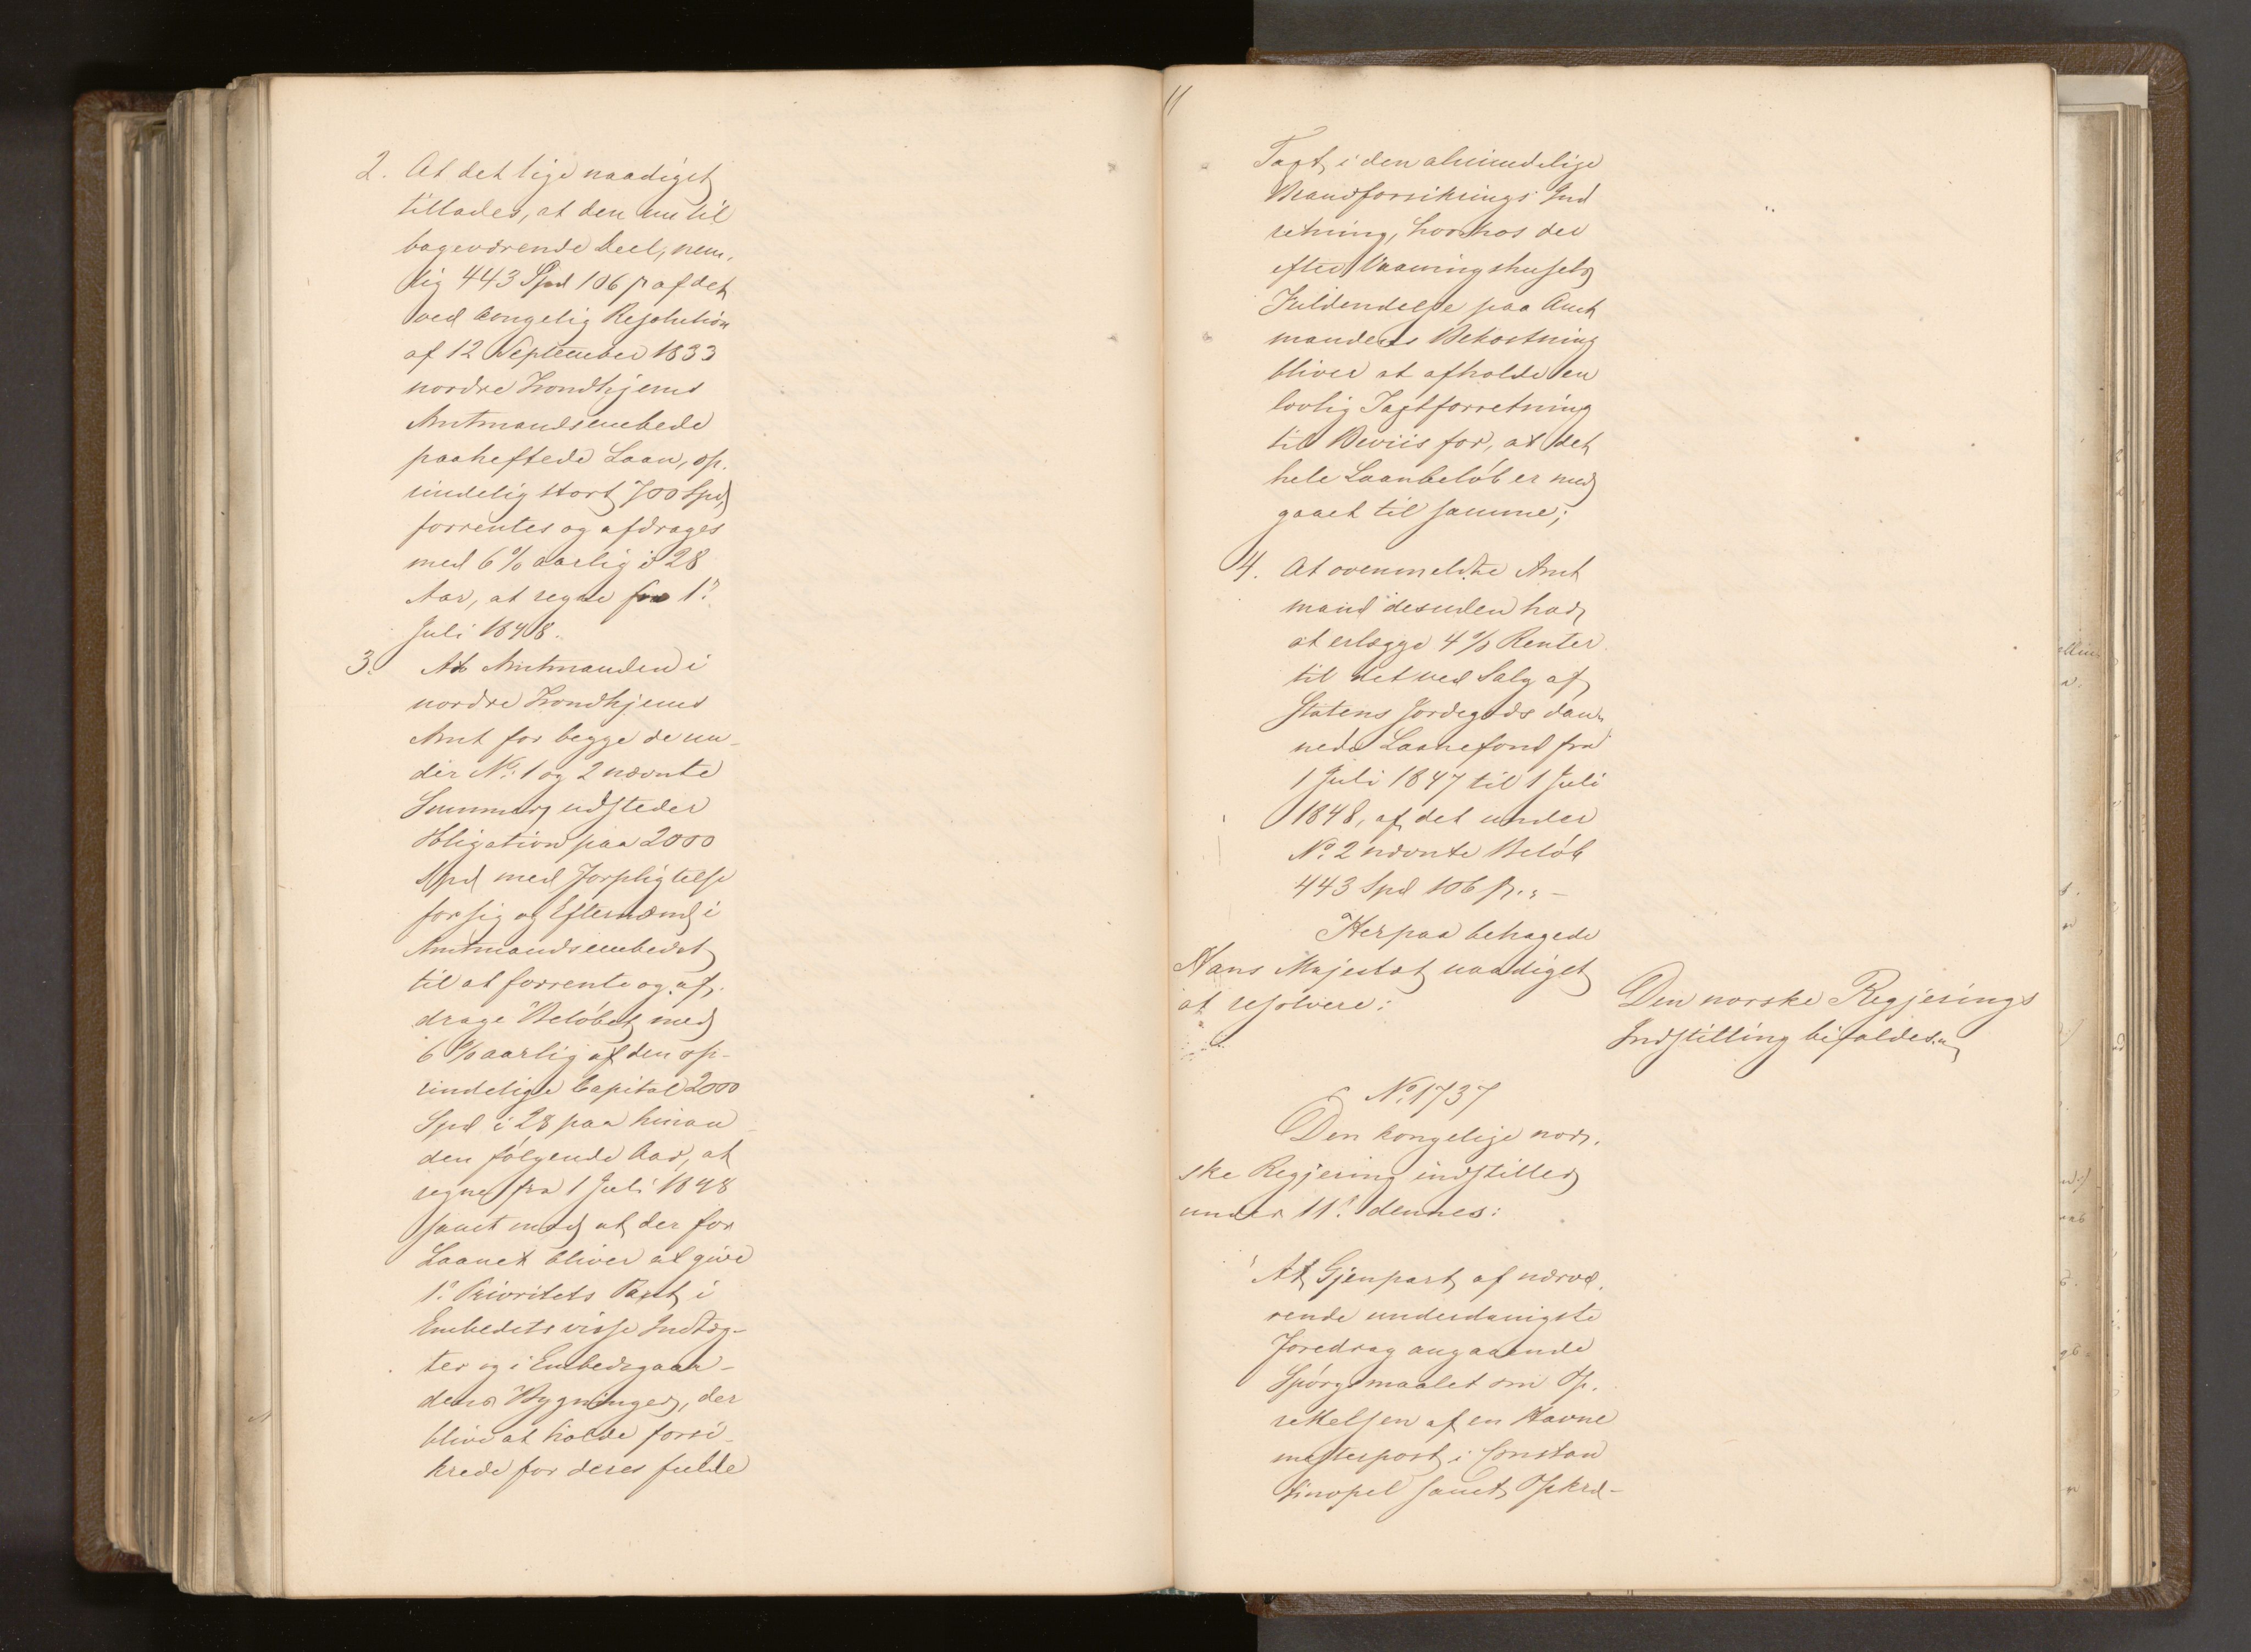 2. At det lige naadigst
tillades, at den nu til
bageværende Deel, nem,
lig 443 Spd 106 ß af det
ved kongelig Resolution
af 12 September 1833
nordre Trondhjems
Amtmandsembede
paaheftede Laan, op.
rindelig stort 700 Spd,
forrentes og afdrages
med 6 % aarlig i 28
Aar, at regne fra 1ste
Juli 1848.
3. At Amtmanden i
nordre Trondhjems
Amt for begge de un-
der No: 1 og 2 nævnte
Summer udsteder
Obligation paa 2000
Spd med Forpligtelse
for sig og Eftermænd i
Amtmandsembedet
til at forrente og af.
drage Beløbet med
6 % aarlig af den op-
rindelige Capital 2000
Spd i 28 paa hinan
den følgende Aar, at
regne fra 1 Juli 1848
samt med at der for
Laanet bliver at give
1ste Prioritets Pant i
Embedets visse Indtæg-
ter og i Embedsgaar-
dens Bygninger, der
blive at holde forsi-
krede for deres fulde
11
Taxt i den almindelige
Brandforsikrings Ind
retning, hvorhos der
efter Vaaningshusets
Fuldendelse paa Amt
mandens Bekostning
bliver at afholde en
lovlig Taxtforretning
til Beviis for, at det
hele Laanbeløb er med
gaaet til samme;
4. At ovenmeldte Amt
mand desuden har
at erlægge 4 % Renter
til det ved Salg af
Statens Jordegods dan
nede Laanefond fra
1 Juli 1847 til 1 Juli
1848, af det under
No: 2 nævnte Beløb
443 Spd 106 ß. " -
Herpaa behagede
Hans Majestæt naadigst
at resolvere:
Den norske Regjerings
Indstilling bifaldes. "
No. 1737
Den kongelige nor,
ske Regjering indstiller
under 11te dennes:
At Gjenpart af nærvæ,
rende underdanigste
Foredrag angaaende
Spørgsmaalet om Op.
rettelsen af en Havne
mesterpost i Constan
tinopel samt Opkræ-